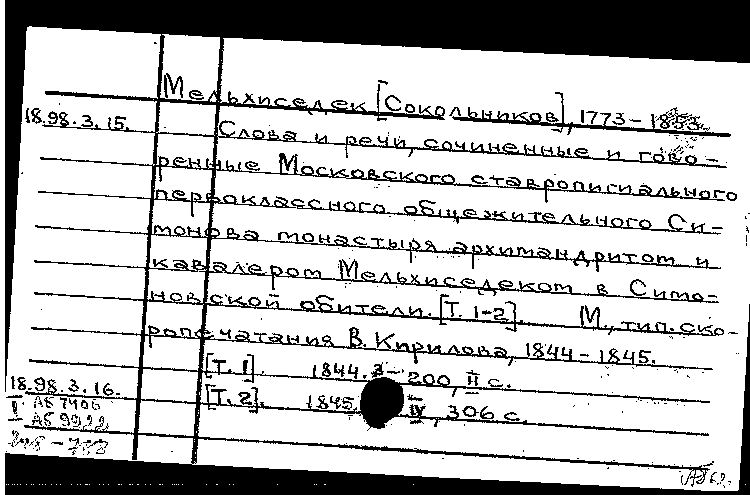 Мельхиседек [Сокольников], 1773-1853.
18.98.3.15. Слова и речи, сочиненные и гово-
ренные Московского ставропигиального
первоклассного общежительного Си-
монова монастыря архимандритом и
кавалером Мельхиседеком в Симо-
новской обители. [Т. 1-2]. М., тип. ско-
ропечатания В. Кирилова, 1844-1845.
[Т. 1]. 1844. 200, II с.
18.98.3.16. [Т. 2]. 1845. IV, 306 с.
I АБ 7406
АБ 9922